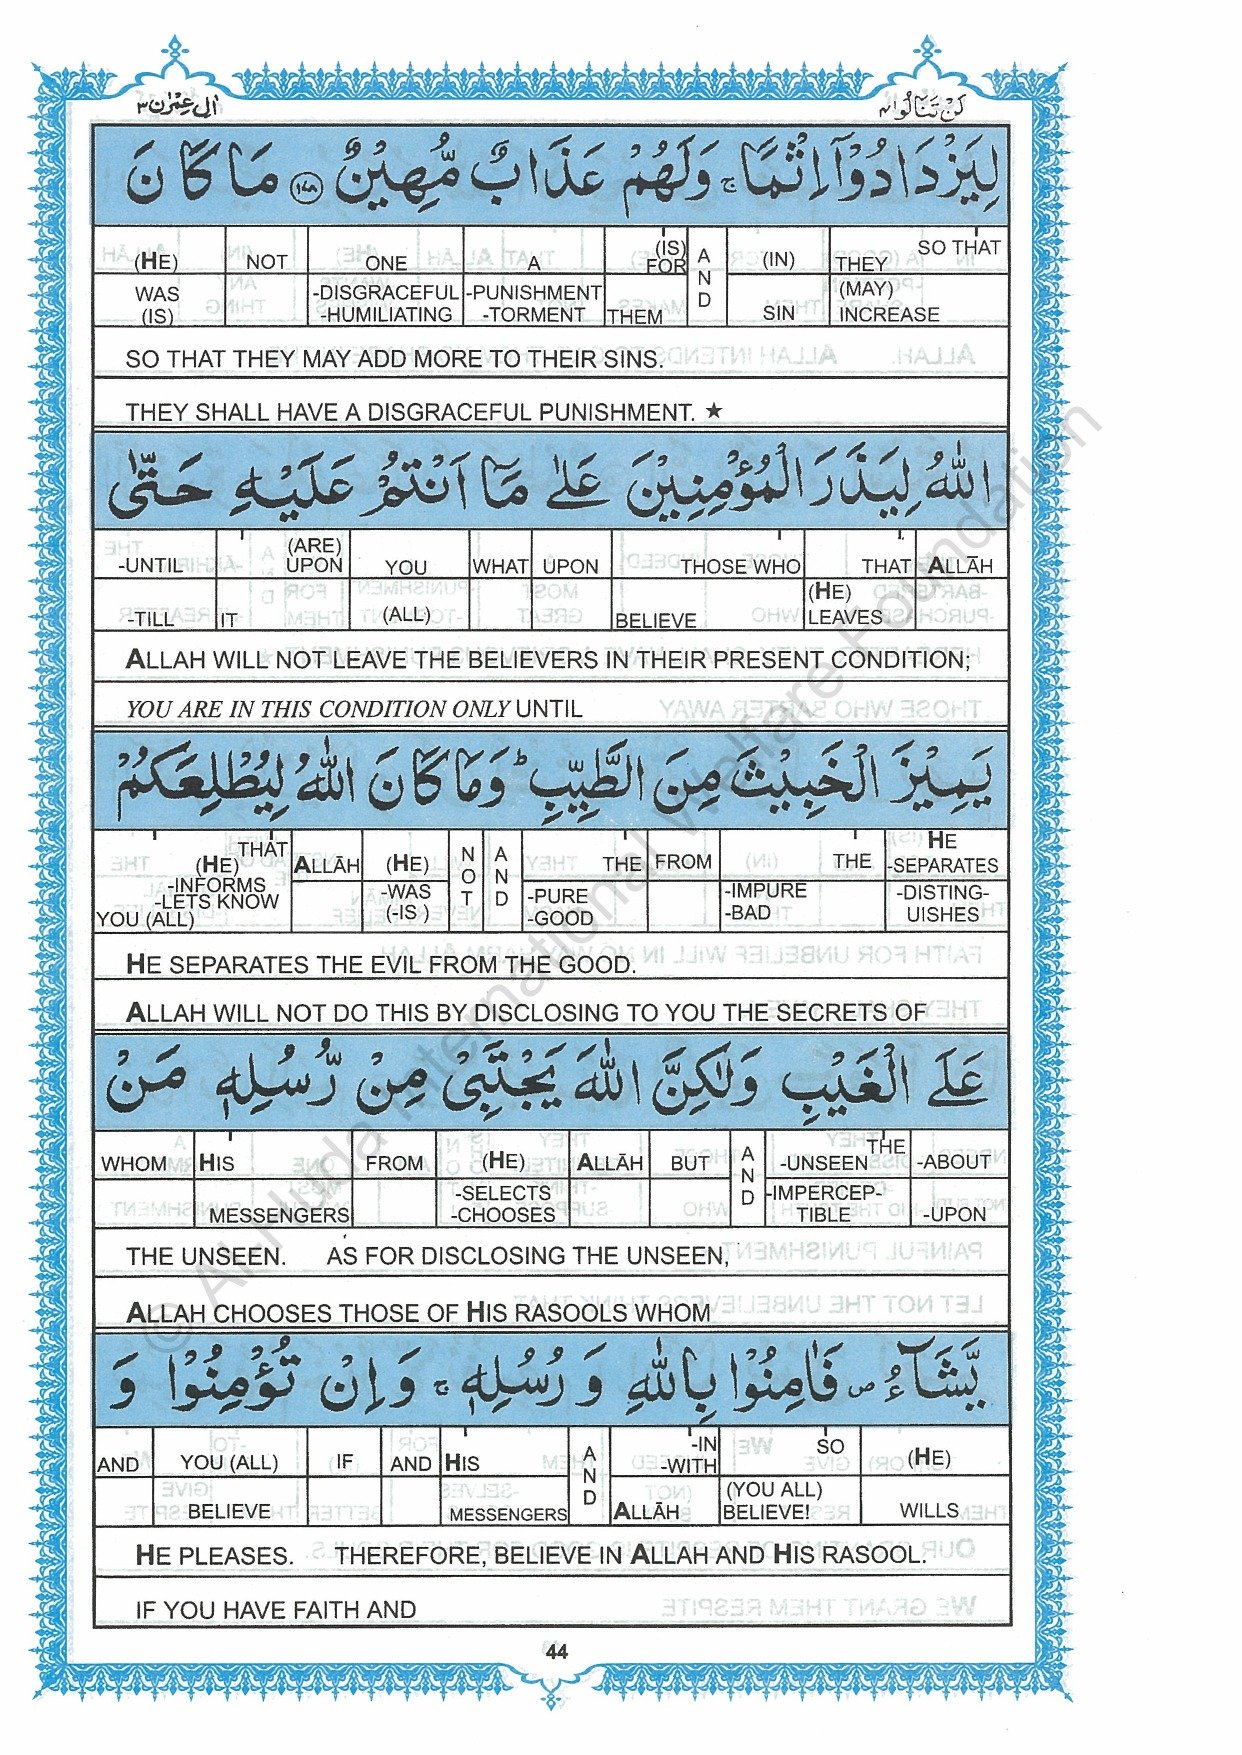 اٰل عِمْرٰن ٣ لَنْ تَنَالُوا ٤
لِيَزْدَادُوْۤا اِثْمًا ۚ وَلَهُمْ عَذَابٌ مُّهِيْنٌ ﴿١٧٨﴾ مَا كَانَ
(HE) NOT ONE A (IS) FOR AND (IN) THEY SO THAT
WAS (IS) -DISGRACEFUL -HUMILIATING -PUNISHMENT -TORMENT THEM SIN (MAY) INCREASE
SO THAT THEY MAY ADD MORE TO THEIR SINS.
THEY SHALL HAVE A DISGRACEFUL PUNISHMENT. ★
اللّٰهُ لِيَذَرَ الْمُؤْمِنِيْنَ عَلٰى مَاۤ اَنْتُمْ عَلَيْهِ حَتّٰى
-UNTIL (ARE) UPON YOU WHAT UPON THOSE WHO THAT ALLĀH
-TILL IT (ALL) BELIEVE (HE) LEAVES
ALLAH WILL NOT LEAVE THE BELIEVERS IN THEIR PRESENT CONDITION;
YOU ARE IN THIS CONDITION ONLY UNTIL
يَمِيْزَ الْخَبِيْثَ مِنَ الطَّيِّبِ ؕ وَمَا كَانَ اللّٰهُ لِيُطْلِعَكُمْ
THAT (HE) ALLĀH (HE) NOT AND THE FROM THE HE -SEPARATES
-INFORMS -LETS KNOW YOU (ALL) -WAS (-IS ) -PURE -GOOD -IMPURE -BAD -DISTING- UISHES
HE SEPARATES THE EVIL FROM THE GOOD.
ALLAH WILL NOT DO THIS BY DISCLOSING TO YOU THE SECRETS OF
عَلَى الْغَيْبِ وَلٰكِنَّ اللّٰهَ يَجْتَبِىْ مِنْ رُّسُلِهٖ مَنْ
WHOM HIS FROM (HE) ALLĀH BUT AND THE -UNSEEN -ABOUT
MESSENGERS -SELECTS -CHOOSES -IMPERCEP- TIBLE -UPON
THE UNSEEN. AS FOR DISCLOSING THE UNSEEN,
ALLAH CHOOSES THOSE OF HIS RASOOLS WHOM
يَّشَآءُ ۪ فَاٰمِنُوْا بِاللّٰهِ وَ رُسُلِهٖ ۚ وَ اِنْ تُؤْمِنُوْا وَ
AND YOU (ALL) IF AND HIS AND -IN -WITH SO (HE)
BELIEVE MESSENGERS ALLĀH (YOU ALL) BELIEVE! WILLS
HE PLEASES. THEREFORE, BELIEVE IN ALLAH AND HIS RASOOL.
IF YOU HAVE FAITH AND
44
© Al-Huda International Welfare Foundation